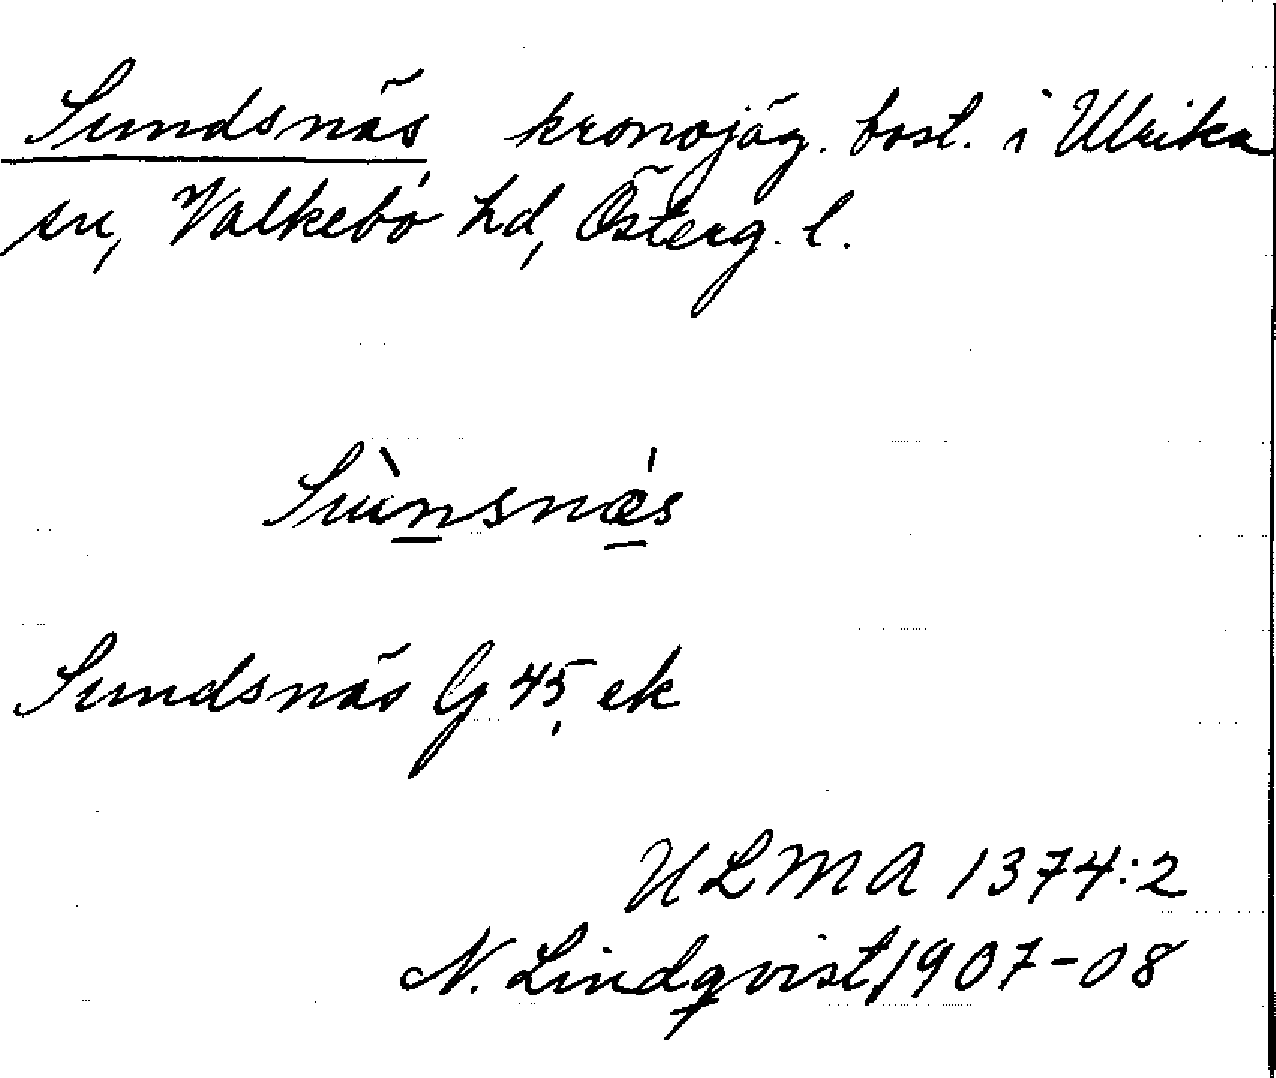 Sundsnäs kronojäg. bost. i Ulrika
sn, Valkebo hd, Österg. l.
Sùnsnæ's
Sundsnäs G 45, ek
ULMA 1374:2
N. Lindqvist 1907-08